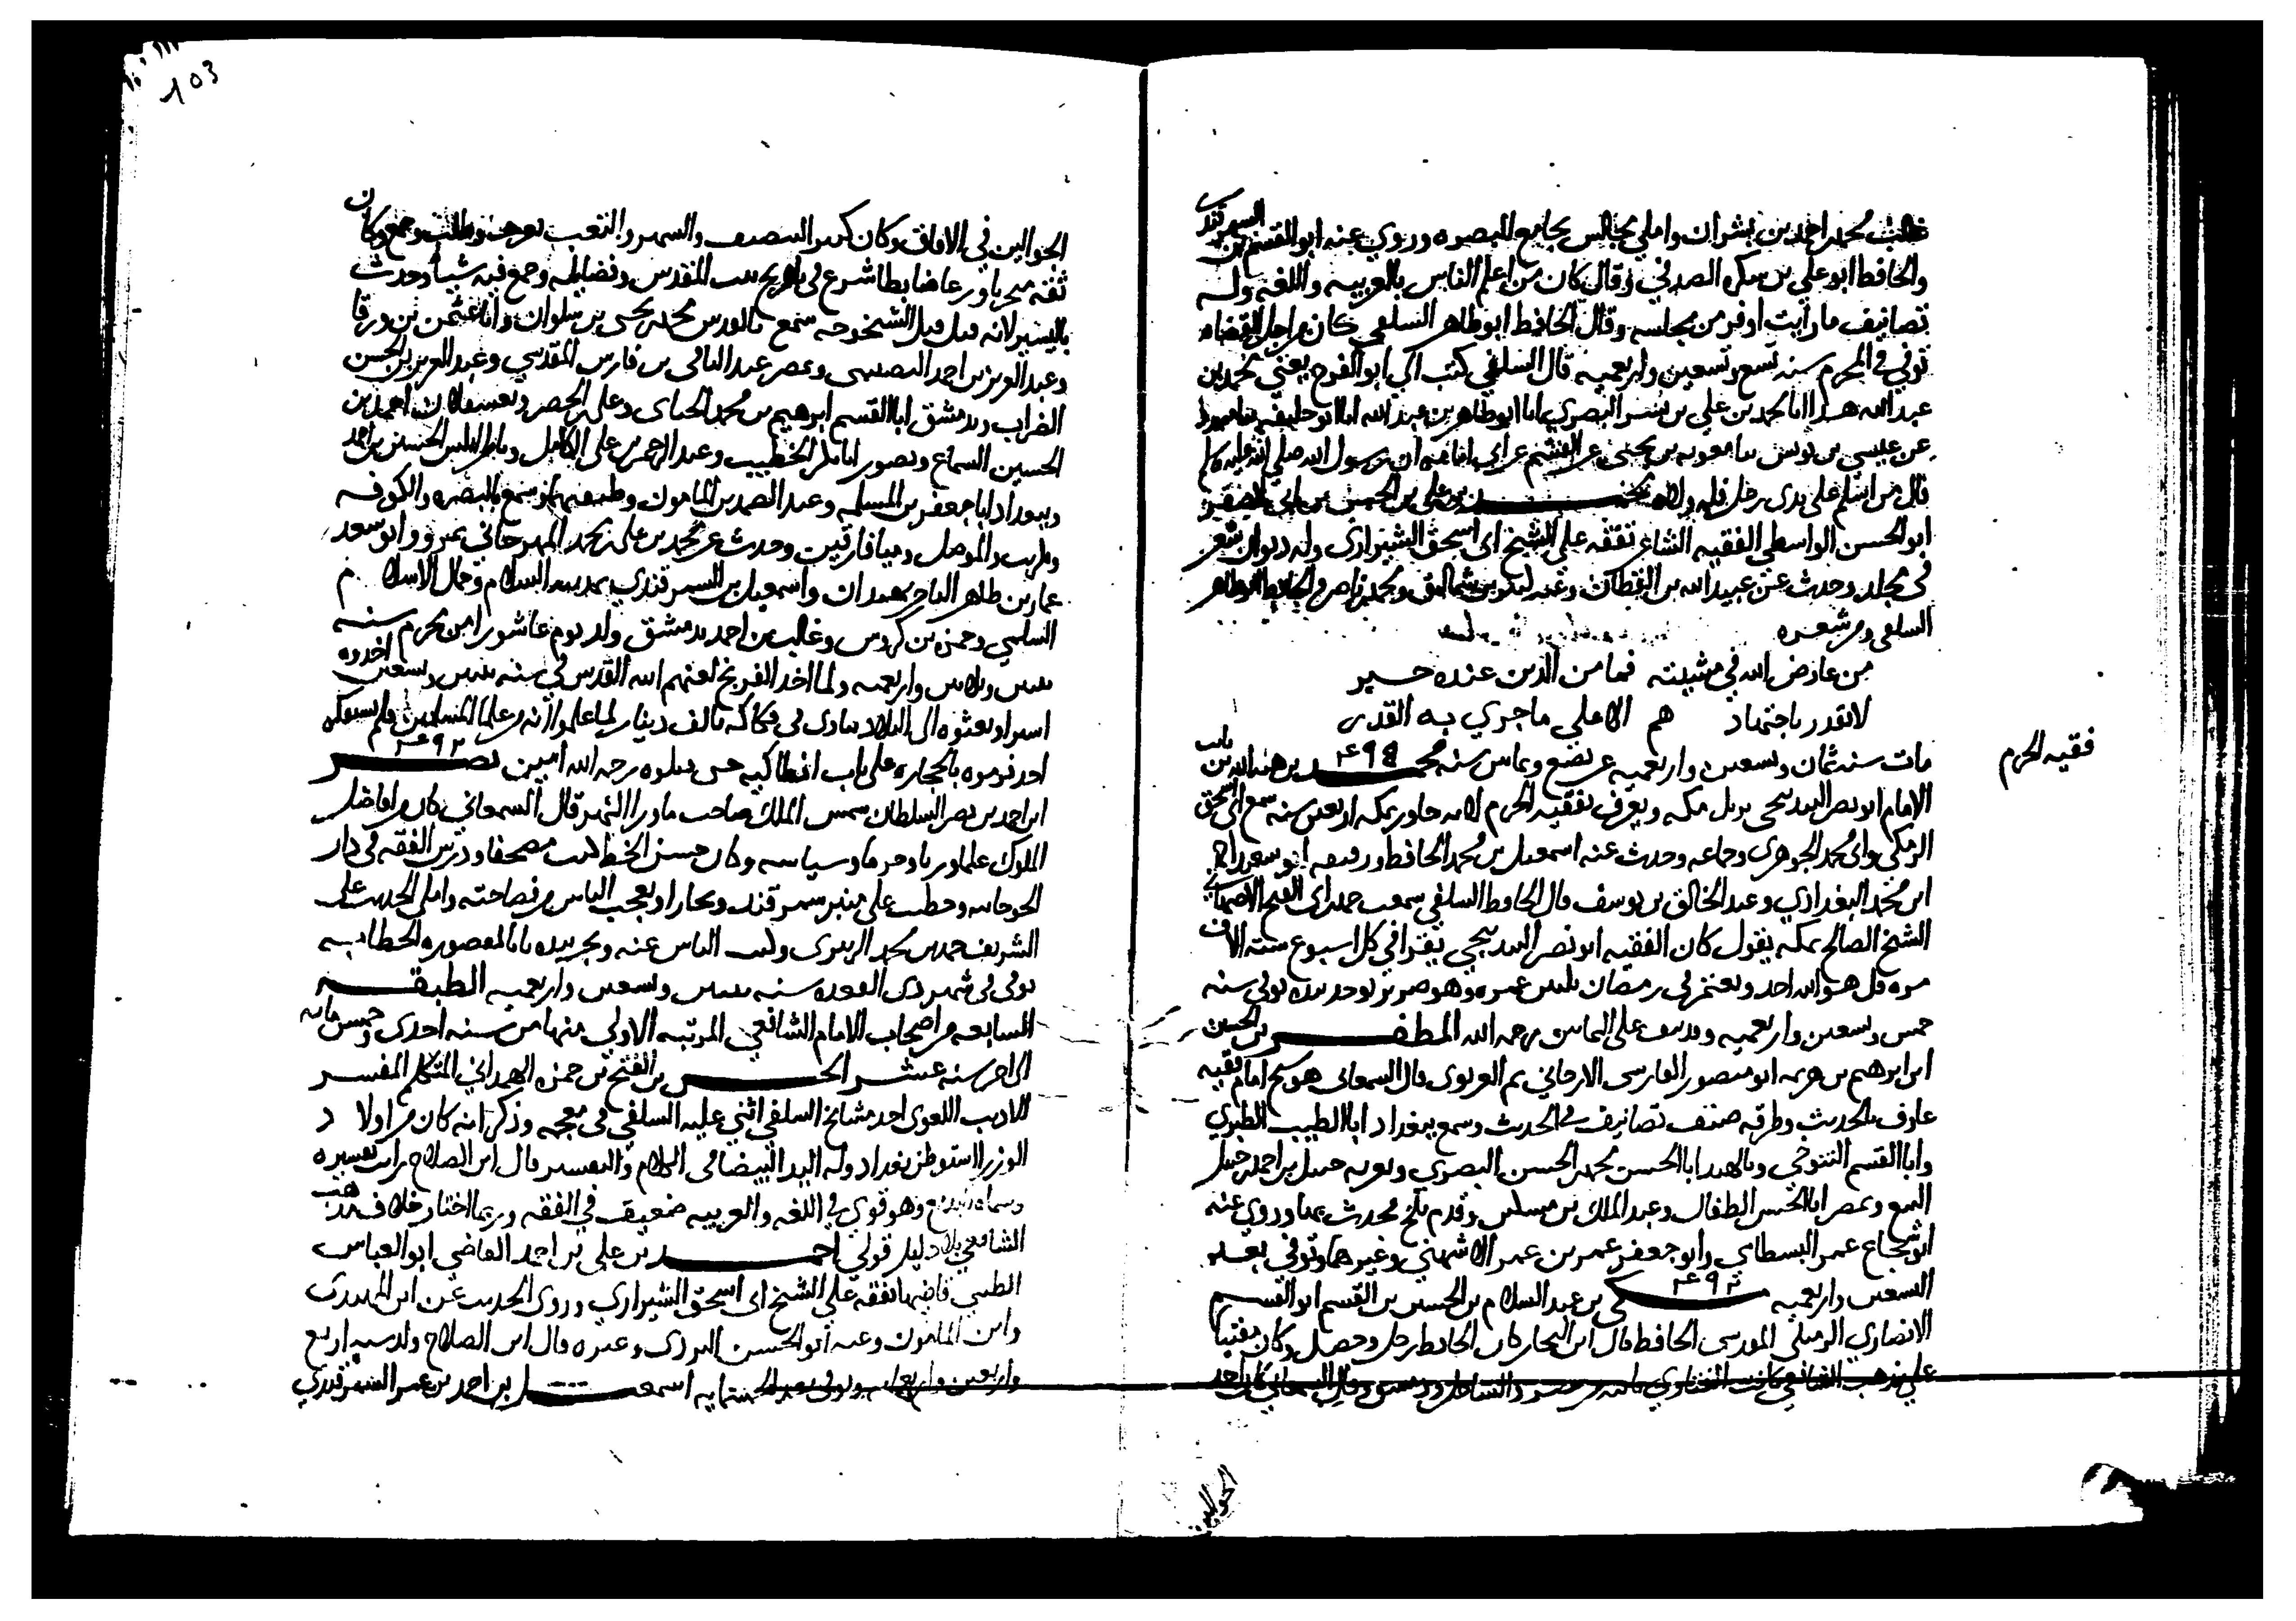 غالب محمد بن احمد بن بشران واملي مجالس بجامع البصره وروي عنه ابو القسم بن السمرقندي
والحافظ ابو علي بن سكره الصدفي وقال كان من اعلم الناس بالعربيه واللغه وله
تصانيف ما رايت اوفر من مجلسه وقال الحافظ ابو طاهر السلفي كان من اجل القضاه
توفي في المحرم سنه تسع وتسعين واربعميه قال السلفي كتب الي ابو الفرج يعني محمد بن
عبد الله هذا انا محمد بن علي بن بشر البصري انا ابو طاهر بن عبد الله انا ابو خليفه
عن عيسي بن يونس معويه بن يحيي عن القسم عن ابي امامه ان رسول الله صلي الله عليه وسلم
قال من اسلم علي يدي رجل فله ولاه محمد بن علي بن الحسن بن ابي الصقر
ابو الحسن الواسطي الفقيه الشاعر تفقه علي الشيخ ابي اسحق الشيرازي وله ديوان شعر
في مجلد وحدث عن عبيد الله بن القطان وعنه ومحمد بن ناصر والحافظ ابو طاهر
السلفي ومن شعره
من عارض الله في مشيئته فما من الدين عنده خبر
لا يقدر باجتهاد هم الا علي ما جري به القدر
مات سنه ثمان وتسعين واربعميه عن بضع وثمانين سنه ٤٩٨ محمد بن هبه الله بن ثابت
الامام ابو نصر البندنيجي نزيل مكه ويعرف بفقيه الحرم لانه جاور بمكه اربعين سنه سمع ابي اسحق
فقيه الحرم
البرمكي وابي محمد الجوهري وجماعه وحدث عنه اسمعيل بن محمد الحافظ ورفيقه ابو سعد احمد
ابن محمد البغدادي وعبد الخالق بن يوسف قال الحافظ السلفي سمعت حمد بن ابي الفتح الاصبهاني
الشيخ الصالح بمكه يقول كان الفقيه ابو نصر البندنيجي يقرا في كل اسبوع سته الاف
مره قل هو الله احد ويعتمر في رمضان ثلثين عمره وهو ضرير يوخذ بيده توفي سنه
خمس وتسعين واربعميه وقد نيف علي الثمانين رحمه الله المظفر بن الحسين
ابن ابرهيم بن هرثمه ابو منصور الفارسي الارجاني ثم الغزنوي قال السمعاني هو شيخ امام فقيه
عارف بالحديث وطرقه صنف تصانيف في الحديث وسمع ببغداد ابا الطيب الطبري
وابا القسم التنوخي وبالهند ابا الحسن محمد بن الحسن البصري وبغزنه حنبل بن احمد بن حنبل
البيع وبمصر ابا الحسن الطفال وعبد الملك بن مسكين وقدم بلخ محدث بها وروي عنه
ابو شجاع عمر البسطامي وابو جعفر عمر بن عمر الاشهبي وغيرهما وتوفي بعد
التسعين واربعميه ٤٩٢ مكي بن عبد السلام بن الحسين بن القسم ابو القسم
الانصاري الرميلي المقدسي الحافظ قال ابن النجار كان الحافظ رحل وحصل وكان مفتيا
علي مذهب الشافعي كانت الفتاوي تاتيه من مصر والساحل ودمشق وقال السمعاني كان احد
الجوالين
103
الجوالين في الافاق وكان كثير النصب والسهر والتعب تغرب وطلب وجمع وكان
ثقه متحريا ورعا ضابطا شرع في تاريخ بيت المقدس وفضايله وجمع فيه شيا وحدث
باليسير لانه قتل قبل الشيخوخه سمع بالقدس محمد بن يحيي بن سلوان وابا عثمن بن ورقا
وعبد العزيز بن احمد النصيبي وبمصر عبد الباقي بن فارس المقدسي وعبد العزيز بن الحسن
الضراب وبدمشق ابا القسم ابرهيم بن محمد الحنائي وعلي بن الخضر وبعسقلان احمد بن
الحسين السماع وبصور ابا بكر الخطيب وعبد الرحمن بن علي الكاملي وباطرابلس الحسين بن احمد
وببغداد ابا جعفر بن المسلمه وعبد الصمد بن المامون وطبقتهما وسمع بالبصره والكوفه
وتكريت والموصل وميافارقين وحدث عنه محمد بن علي بن محمد المهرجاني بمرو وابو سعد
عمار بن طاهر التاجر بهمدان واسمعيل بن السمرقندي بمدينه السلام وجمال الاسلام
السلمي وحمزه بن كروس وغالب بن احمد بدمشق ولد يوم عاشورا من محرم سنه
ثنتين وثلاثين واربعميه ولما اخذ الفرنج لعنهم الله القدس في سنه ثنتين وتسعين اخذوه
اسيرا وبعثوه الي البلاد ينادي في فكاكه بالف دينار لما علموا انه من علما المسلمين فلم يستفكه
احد فرموه بالحجاره علي باب انطاكيه حتي قتلوه رحمه الله امين ٤٩٢ نصر
ابن احمد بن نصر السلطان شمس الملك صاحب ما ورا النهر قال السمعاني كان من افاضل
الملوك علما ورايا وحزما وسياسه وكان حسن الخط كتب مصحفا ودرس الفقه في دار
الجوزجانيه وخطب علي منبر سمرقند وبخارا وتعجب الناس من فصاحته واملي الحديث عن
الشريف حمد بن محمد الزبيري وكتب الناس عنه وبخر بيده بابا لمقصوره الخطابه
توفي في شهر ذي القعده سنه ثنتين وتسعين واربعميه الطبقه
السابعه من اصحاب الامام الشافعي المرتبه الاولي منها من سنه احدي وخمس مايه
الي اخر سنه عشر الحسن بن الفتح بن حمزه الهمداني المتكلم المفسر
الاديب اللغوي احد مشايخ السلفي اثني عليه السلفي في معجمه وذكر انه كان من اولاد
الوزرا استوطن بغداد وله اليد البيضا في الكلام والتفسير قال ابن الصلاح رايت تفسيره
وسماه البديع وهو قوي في اللغه والعربيه ضعيف في الفقه وربما اختار خلاف مذهب
الشافعي بلا دليل قوي احمد بن علي بن احمد القاضي ابو العباس
الطيبي قاضيها تفقه علي الشيخ ابي اسحق الشيرازي وروي الحديث عن ابن المهتدي
وابن المامون وعنه ابو الحسين اليزدي وغيره قال ابن الصلاح ولد سنه اربع
واربعين واربعمايه وتوفي بعد الخمسمايه اسمعيل بن احمد بن عمر السمرقندي